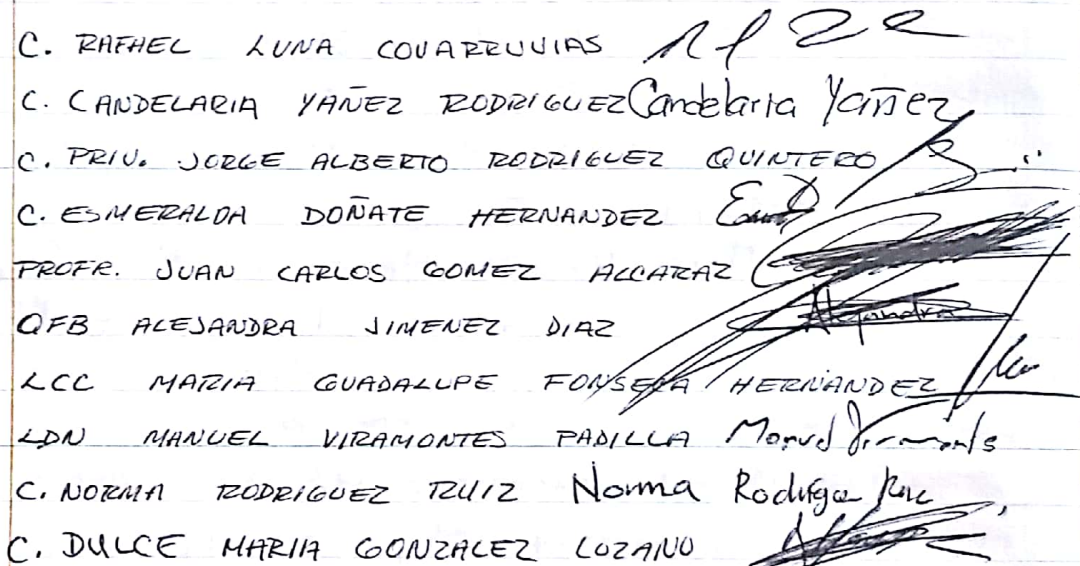 C. RAFAEL LUNA COVARRUVIAS
C. CANDELARIA YAÑEZ RODRIGUEZ Candelaria Yañez
C. PRIV. JORGE ALBERTO RODRIGUEZ QUINTERO
C. ESMERALDA DOÑATE HERNANDEZ
PROFR. JUAN CARLOS GOMEZ ALCARAZ
QFB ALEJANDRA JIMENEZ DIAZ Alejandra
LCC MARIA GUADALUPE FONSECA HERNANDEZ
LDN MANUEL VIRAMONTES PADILLA Manuel Viramontes
C. NORMA RODRIGUEZ RUIZ Norma Rodrigez Ruiz
C. DULCE MARIA GONZALEZ LOZANO